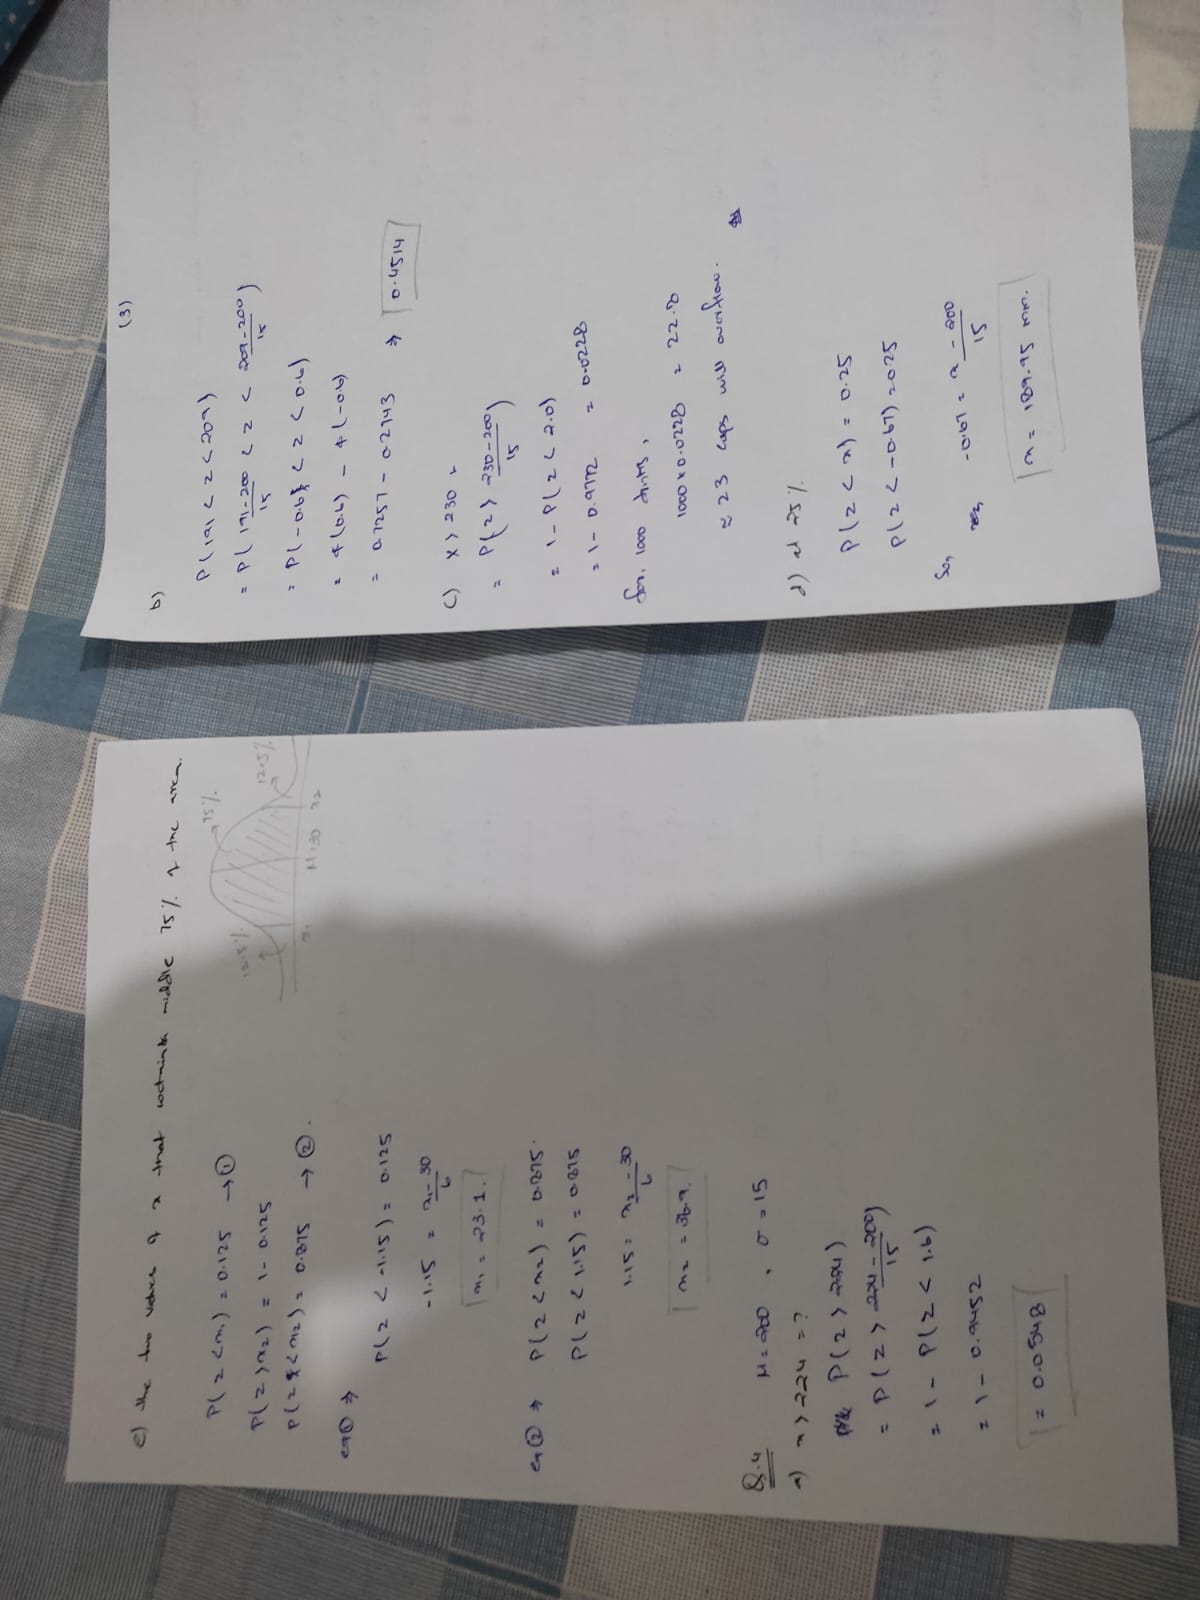 e) the two values of x that contains middle 75% of the area.
75%
12.5%
12.5%
x₁ M=30 x₂
P(z<x₁) = 0.125 → ①
P(z>x₂) = 1-0.125
P(z<x₂) = 0.875 → ②.
eq① ⇒
P(z < -1.15) = 0.125
-1.15 = x₁-30/6
x₁ = 23.1.
eq② ⇒ P(z<x₂) = 0.875.
P(z<1.15) = 0.875
1.15 = x₂-30/6
x₂ = 36.9.
Q.4 M=200 , σ=15
a) x>224 = ?
P(z>224)
= P(z> 224-200/15)
= 1- P(z< 1.6)
= 1- 0.9452
= 0.0548
(3)
b)
P(191<z<209)
= P(191-200/15 < z < 209-200/15)
= P(-0.6 < z < 0.6)
= φ(0.6) - φ(-0.6)
= 0.7257-0.2743 ⇒ 0.4514
c) x>230
= P(z> 230-200/15)
= 1-P(z<2.0)
= 1- 0.9772 = 0.0228
for, 1000 drinks,
1000×0.0228 = 22.8
≈ 23 cups will overflow.
d) at 25%
P(z<x) = 0.25
P(z<-0.67) = 0.25
So,
-0.67 = x-200/15
x = 189.95 mm.